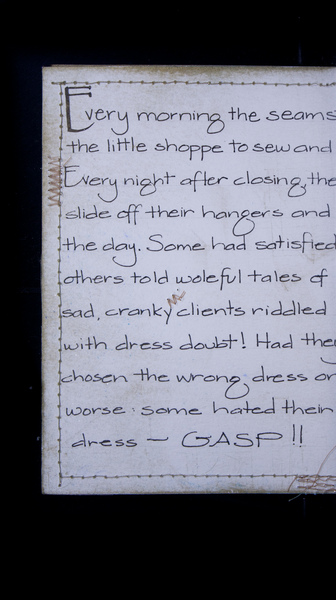 Every morning the seams
the little shoppe to sew and
Every night after closing, the
slide off their hangers and
the day. Some had satisfied
others told woleful tales of
sad, cranky clients riddled
with dress doubt! Had the
chosen the wrong dress or
worse: some hated their
dress — GASP!!